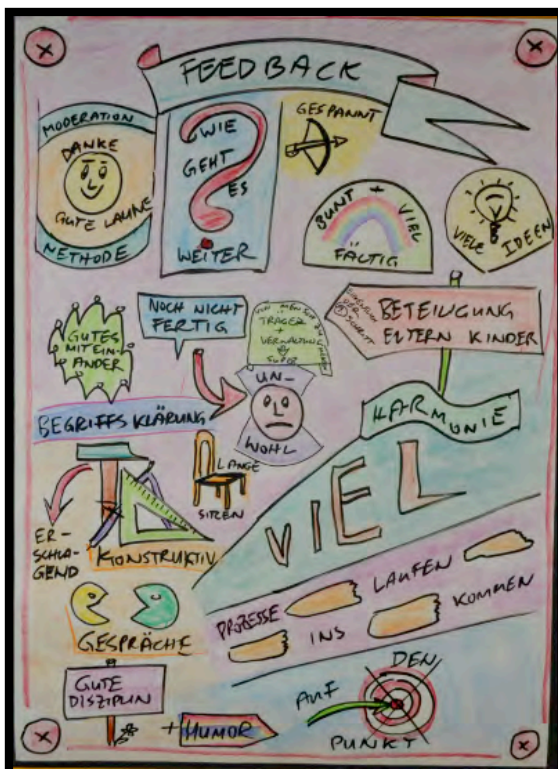 FEEDBACK
MODERATION
DANKE
GUTE LAUNE
METHODE
WIE
GEHT
ES
WEITER
GESPANNT
BUNT + VIEL
FÄLTIG
VIELE IDEEN
GUTES
MITEIN-
ANDER
NOCH NICHT
FERTIG
TRÄGER
+
VERWALTUNG
SUPER
BETEILIGUNG
ELTERN KINDER
UN-
WOHL
BEGRIFFSKLÄRUNG
HARMONIE
LANGE
SITZEN
VIEL
ER-
SCHLA-
GEND
KONSTRUKTIV
PROZESSE
LAUFEN
INS
KOMMEN
GESPRÄCHE
GUTE
DISZIPLIN
+ HUMOR
AUF
DEN
PUNKT